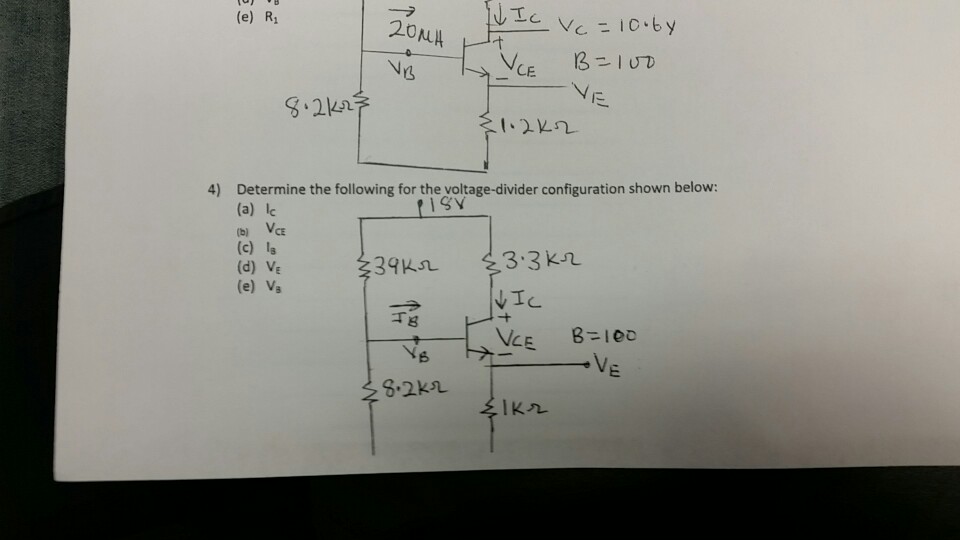 (e) R₁
20μA
↓ IC VC = 10.6V
VB
VCE
+
-
B=100
VE
8.2kΩ
1.2kΩ
4) Determine the following for the voltage-divider configuration shown below:
(a) IC
18V
(b) VCE
(c) IB
(d) VE
(e) VB
39kΩ
3.3kΩ
↓ IC
IB
+
VCE
-
B=100
VB
VE
8.2kΩ
1kΩ